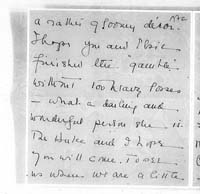 a rather gloomy décor.
I hope you and Elsie
finished the "gamble"
without too heavy losses
- what a darling and
wonderful person she is.
The Duke and I hope
you will come to see
us when we are a little